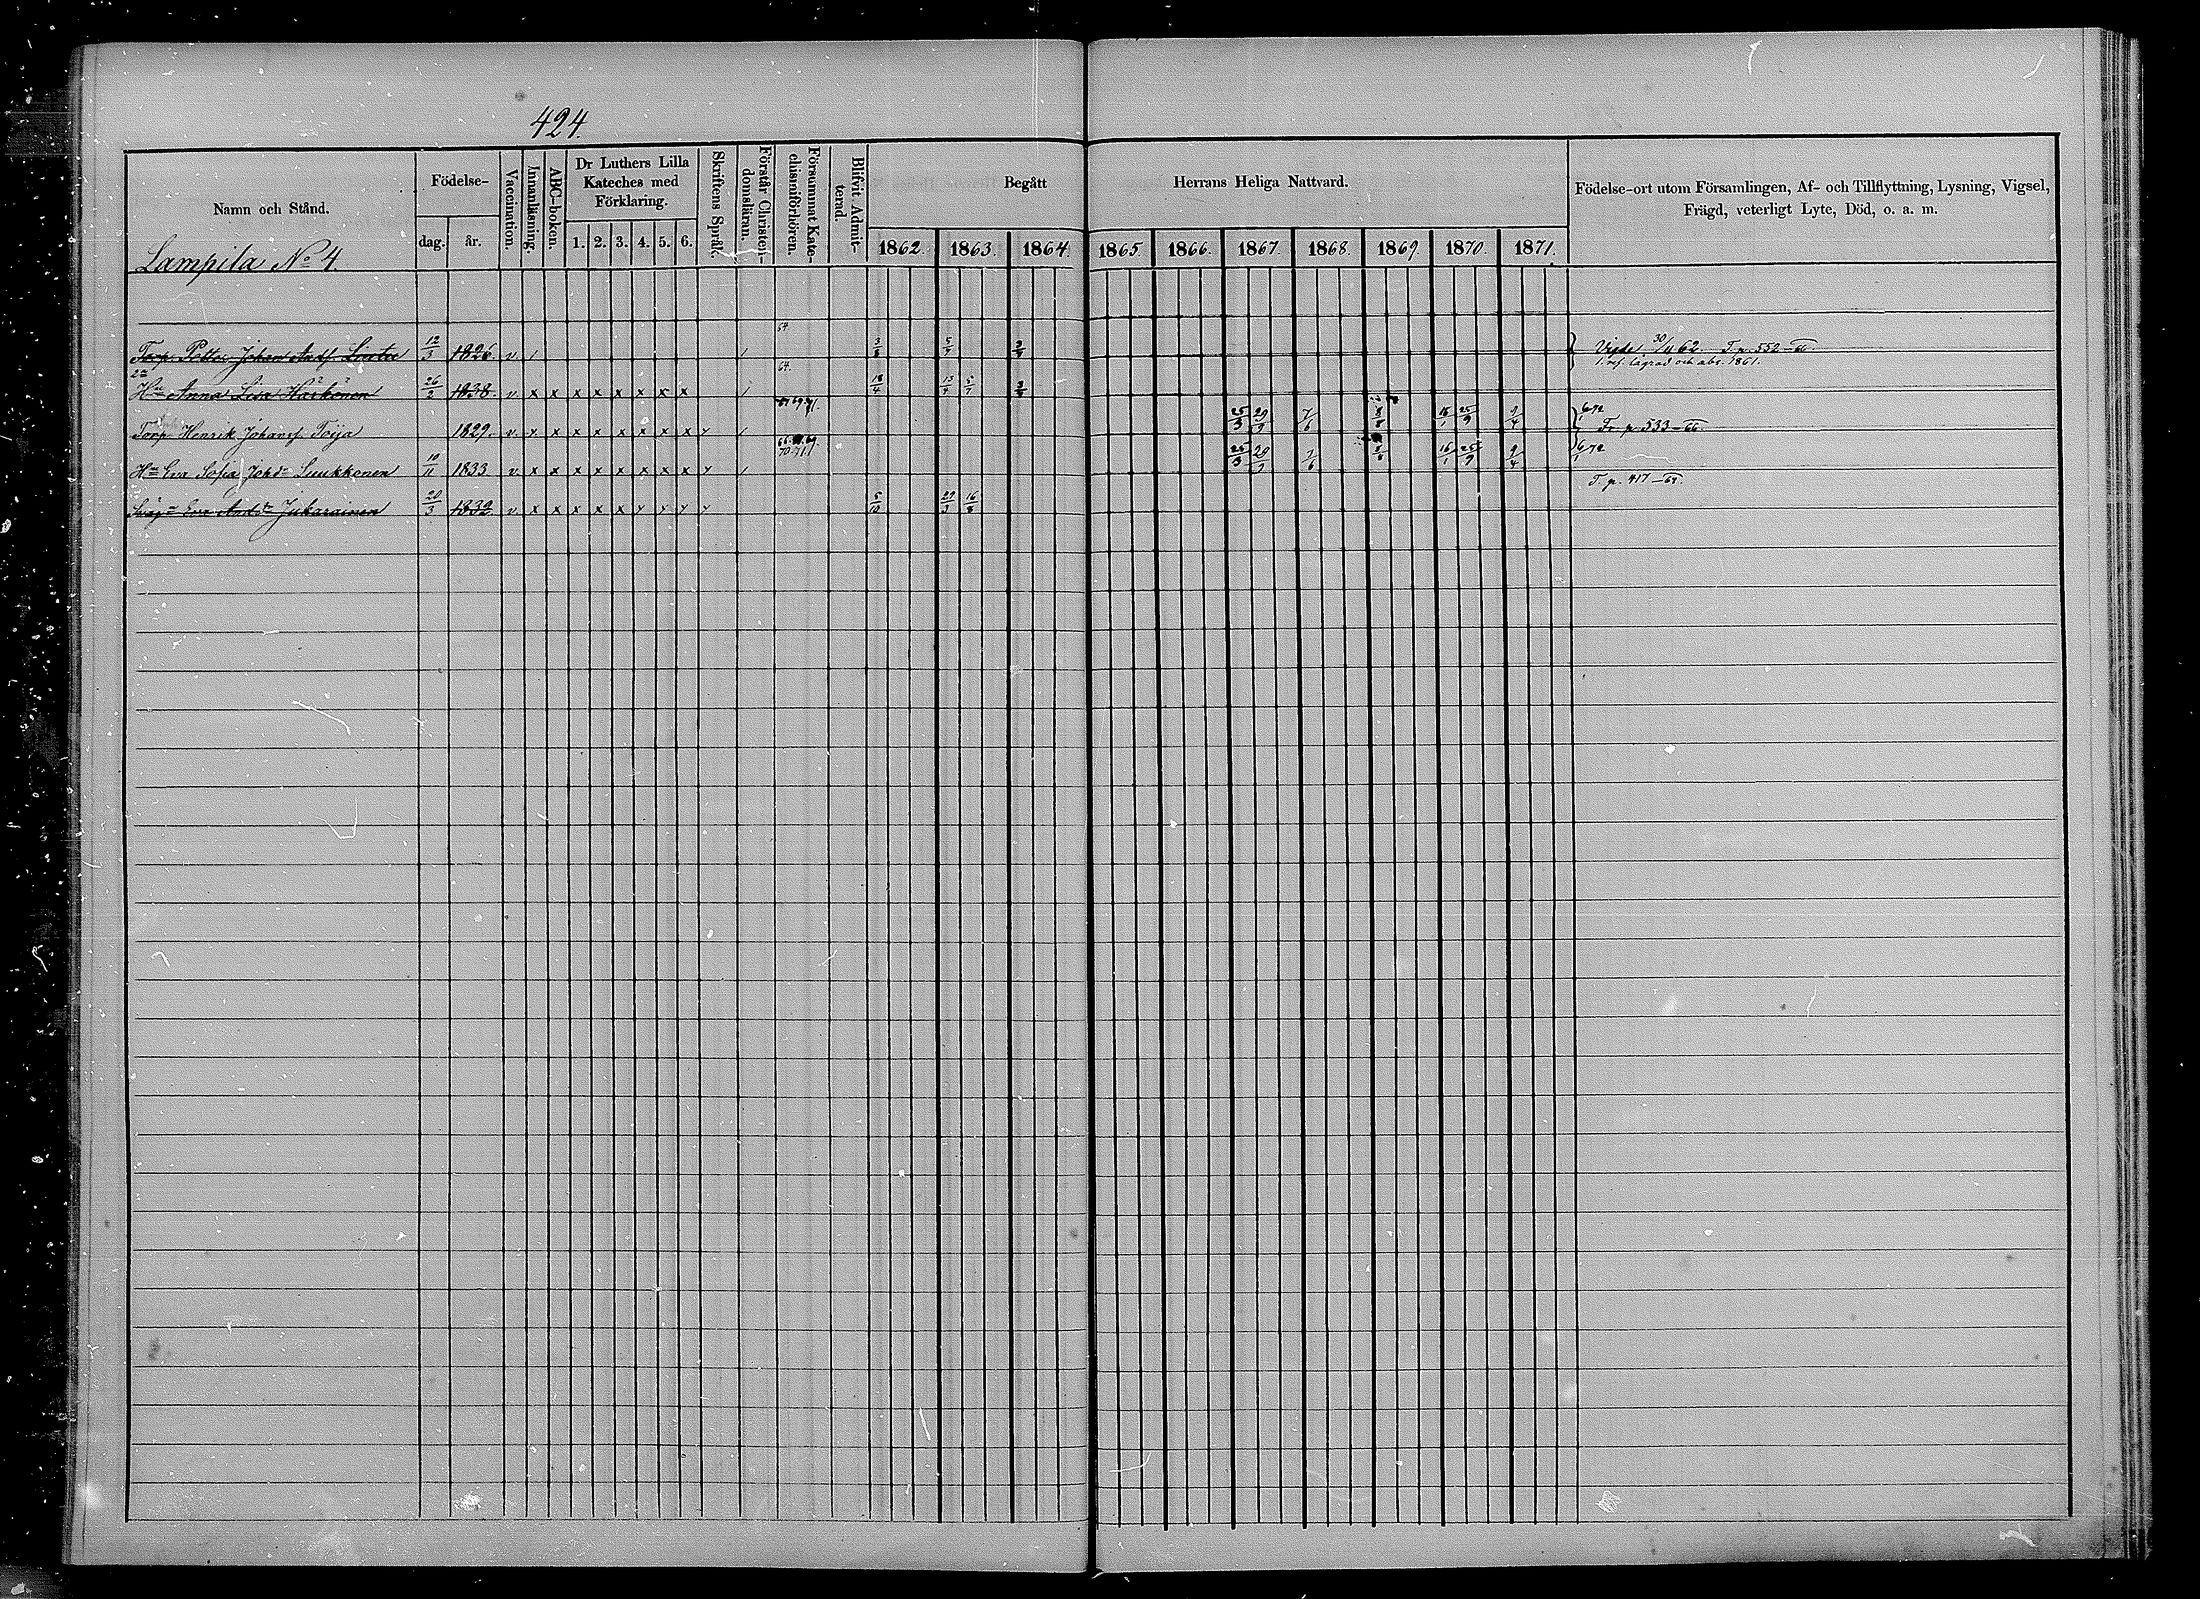 424.
Namn och Stånd.
Födelse-
dag.
år.
Vaccination.
Innanläsning.
ABC-boken.
Dr Luthers Lilla
Kateches med
Förklaring.
1. 2. 3. 4. 5. 6.
Skriftens Språk.
Förstår Christen-
domsläran.
Försummat Kate-
chismiförhören.
Blifvit Admit-
terad.
Begått Herrans Heliga Nattvard.
1862. 1863. 1864. 1865. 1866. 1867. 1868. 1869. 1870. 1871.
Födelse-ort utom Församlingen, Af- och Tillflyttning, Lysning, Vigsel,
Frägd, veterligt Lyte, Död, o. a. m.
Lampila No 4.
64.
Torp. Petter Johan 12/3 1826. v / / 3/8 5/7 Vigde 30/11 62. T. p. 552-66
lagrad och abs. 1861.
2a
Hu Anna Lisa Härkönen 26/2 1838. v x x x x x x x x / 64. 18/4 13/4 5/7
Torp Henrik Johans. Toija 1829. v x x x x x x x x y / 69 71. 25/3 29/9 7/6 8/8 16/1 25/9 9/4 6/1 72 Fr. p. 533-66
Hu Eva Sofia Johsdr Luukkonen 10/11 1833 v x x x x x x x x y / 70. 71. 25/3 29/9 7/6 8/8 16/1 25/9 9/4 6/1 72
Eva Andsdr Jukarainen 20/3 1832 v x x x x x y y y y 5/10 29/3 16/8 T. p. 417-64.